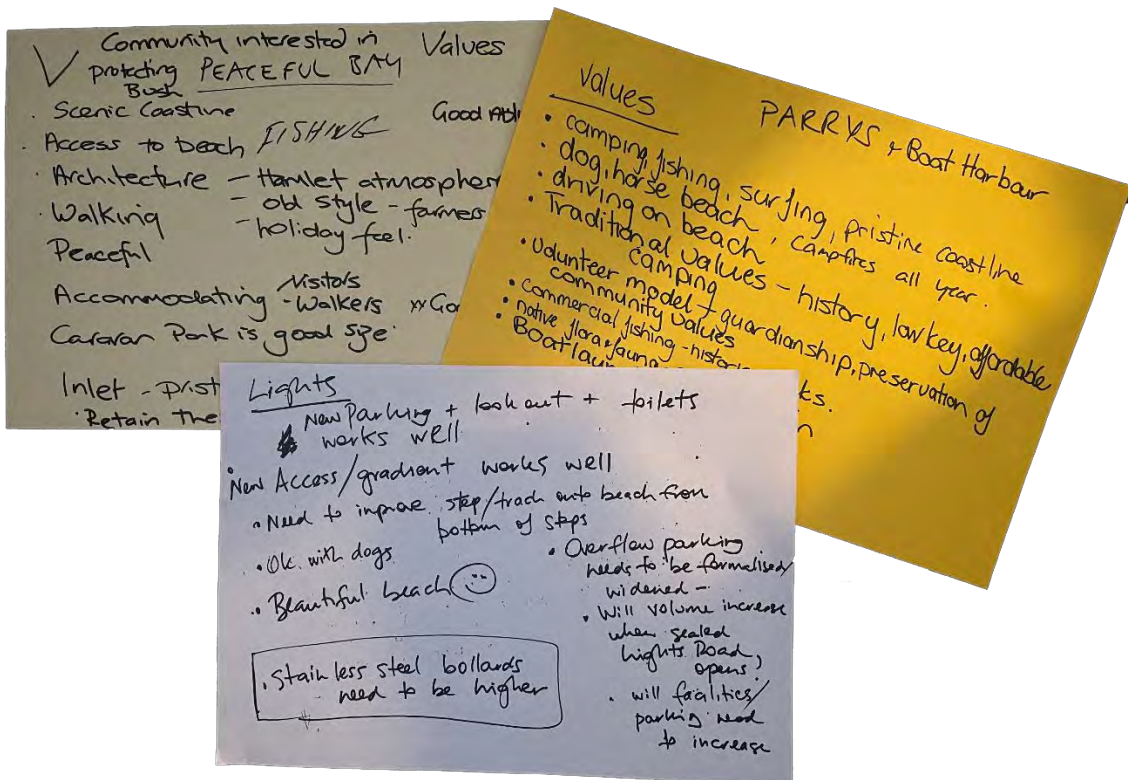 Community interested in
protecting PEACEFUL BAY
Bush
Values
Scenic Coastline
Good
· Access to beach FISHING
· Architecture - Hamlet atmospher
- old style - farmers
· Walking
- holiday feel.
Peaceful
Accommodating - Visitors
- Walkers
Caravan Park is good size
Inlet - prist
· Retain The
Values
PARRYS + Boat Harbour
• camping, fishing, surfing, pristine coastline
• dog, horse beach
• driving on beach, campfires all year.
• Traditional values - history, low key, affordable
camping
• Volunteer model + guardianship, preservation of
community values
• commercial fishing - histori
ks.
• native flora & fauna
• Boat laun
n
Lights
New Parking + lookout + toilets
works well
New Access/gradient works well
• Need to improve step/track onto beach from
bottom of steps
• Ok with dogs
• Beautiful beach
• Stainless steel bollards
need to be higher
• Overflow parking
needs to be formalised/
widened -
• Will volume increase
when sealed
Lights Road
opens?
• will facalities/
parking need
to increase